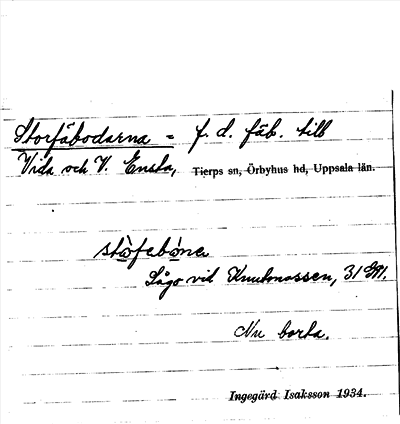 Storfäbodarna = f. d. fäb. till
Vida och V. Ensta, Tierps sn, Örbyhus hd, Uppsala län.
stòfebòna
Lågo vid Knutmossen, 31
Nu borta.
Ingegärd Isaksson 1934.